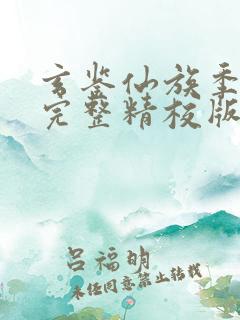 玄鉴仙族季
完整精校版
吕福明
未经同意禁止转载